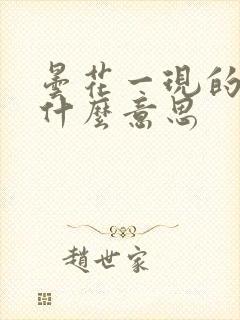 曇花一現的
什麼意思
趙世家